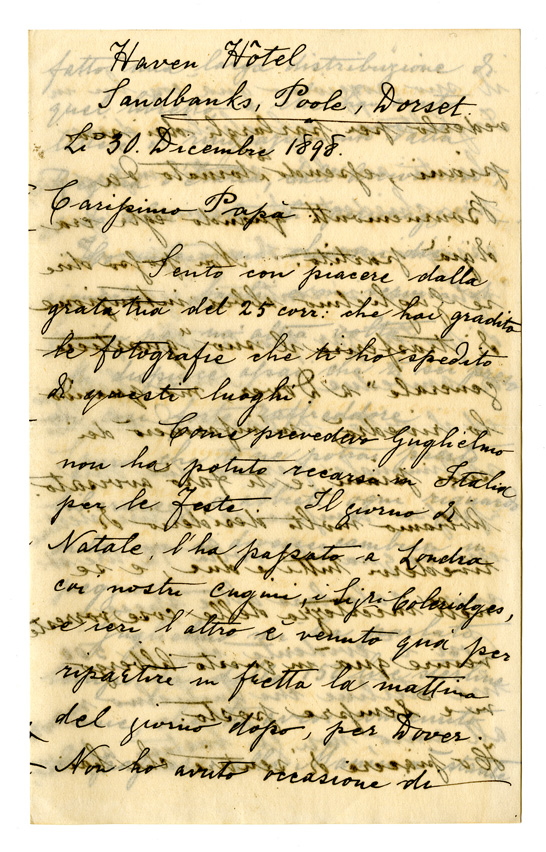 Haven Hôtel
Sandbanks, Poole, Dorset
Li 30. Dicembre 1898.
Carissimo Papà
Sento con piacere dalla
grata tua del 25 corr: che hai gradito
le fotografie che ti ho spedito
di questi luoghi.
Come prevedevo Guglielmo
non ha potuto recarsi in Italia
per le Feste. Il giorno di
Natale, l'ha passato a Londra
coi nostri Cugini, i Sigri Coleridges,
e ieri l'altro è venuto quà per
ripartire in fretta la mattina
del giorno dopo, per Dover.
Non ho avuto occasione di